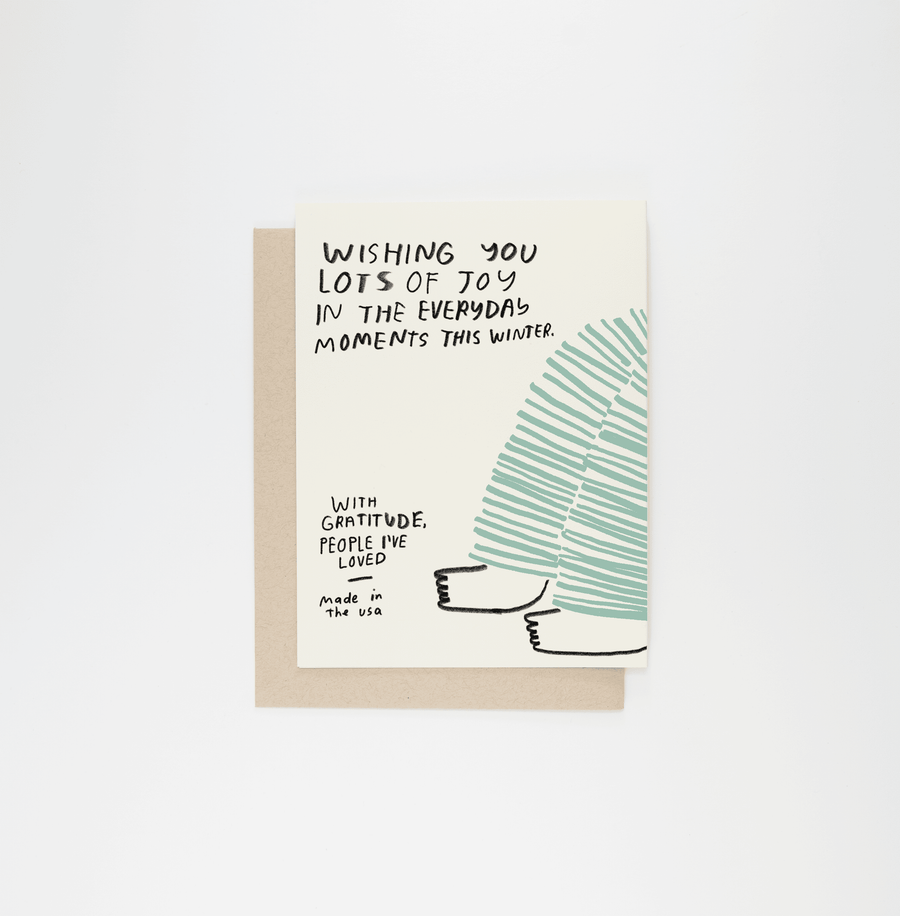 WISHING YOU
LOTS OF JOY
IN THE EVERYDAY
MOMENTS THIS WINTER.
WITH
GRATITUDE,
PEOPLE I'VE
LOVED
made in
the usa